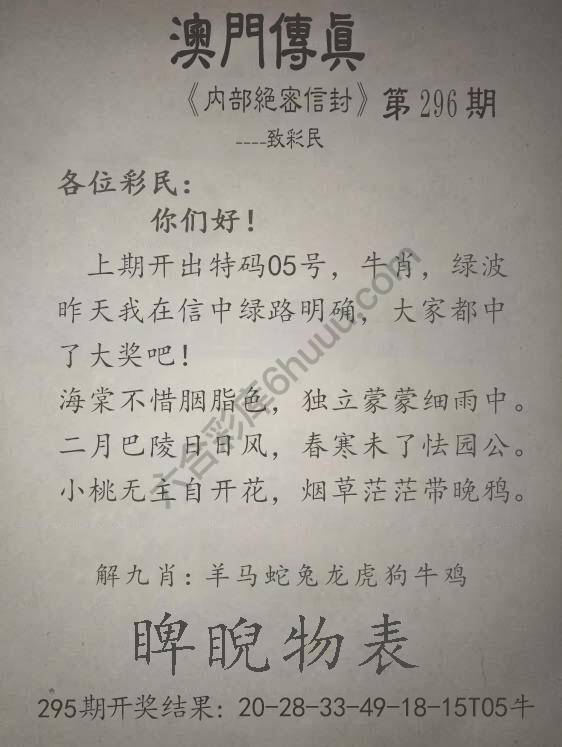 澳門傳眞
《内部絕密信封》第296期
----致彩民
各位彩民：
你们好！
上期开出特码05号，牛肖，绿波
昨天我在信中绿路明确，大家都中
了大奖吧！
海棠不惜胭脂色，独立蒙蒙细雨中。
二月巴陵日日风，春寒未了怯园公。
小桃无主自开花，烟草茫茫带晚鸦。
解九肖：羊马蛇兔龙虎狗牛鸡
睥睨物表
295期开奖结果：20-28-33-49-18-15T05牛
六合彩库6huuu.com